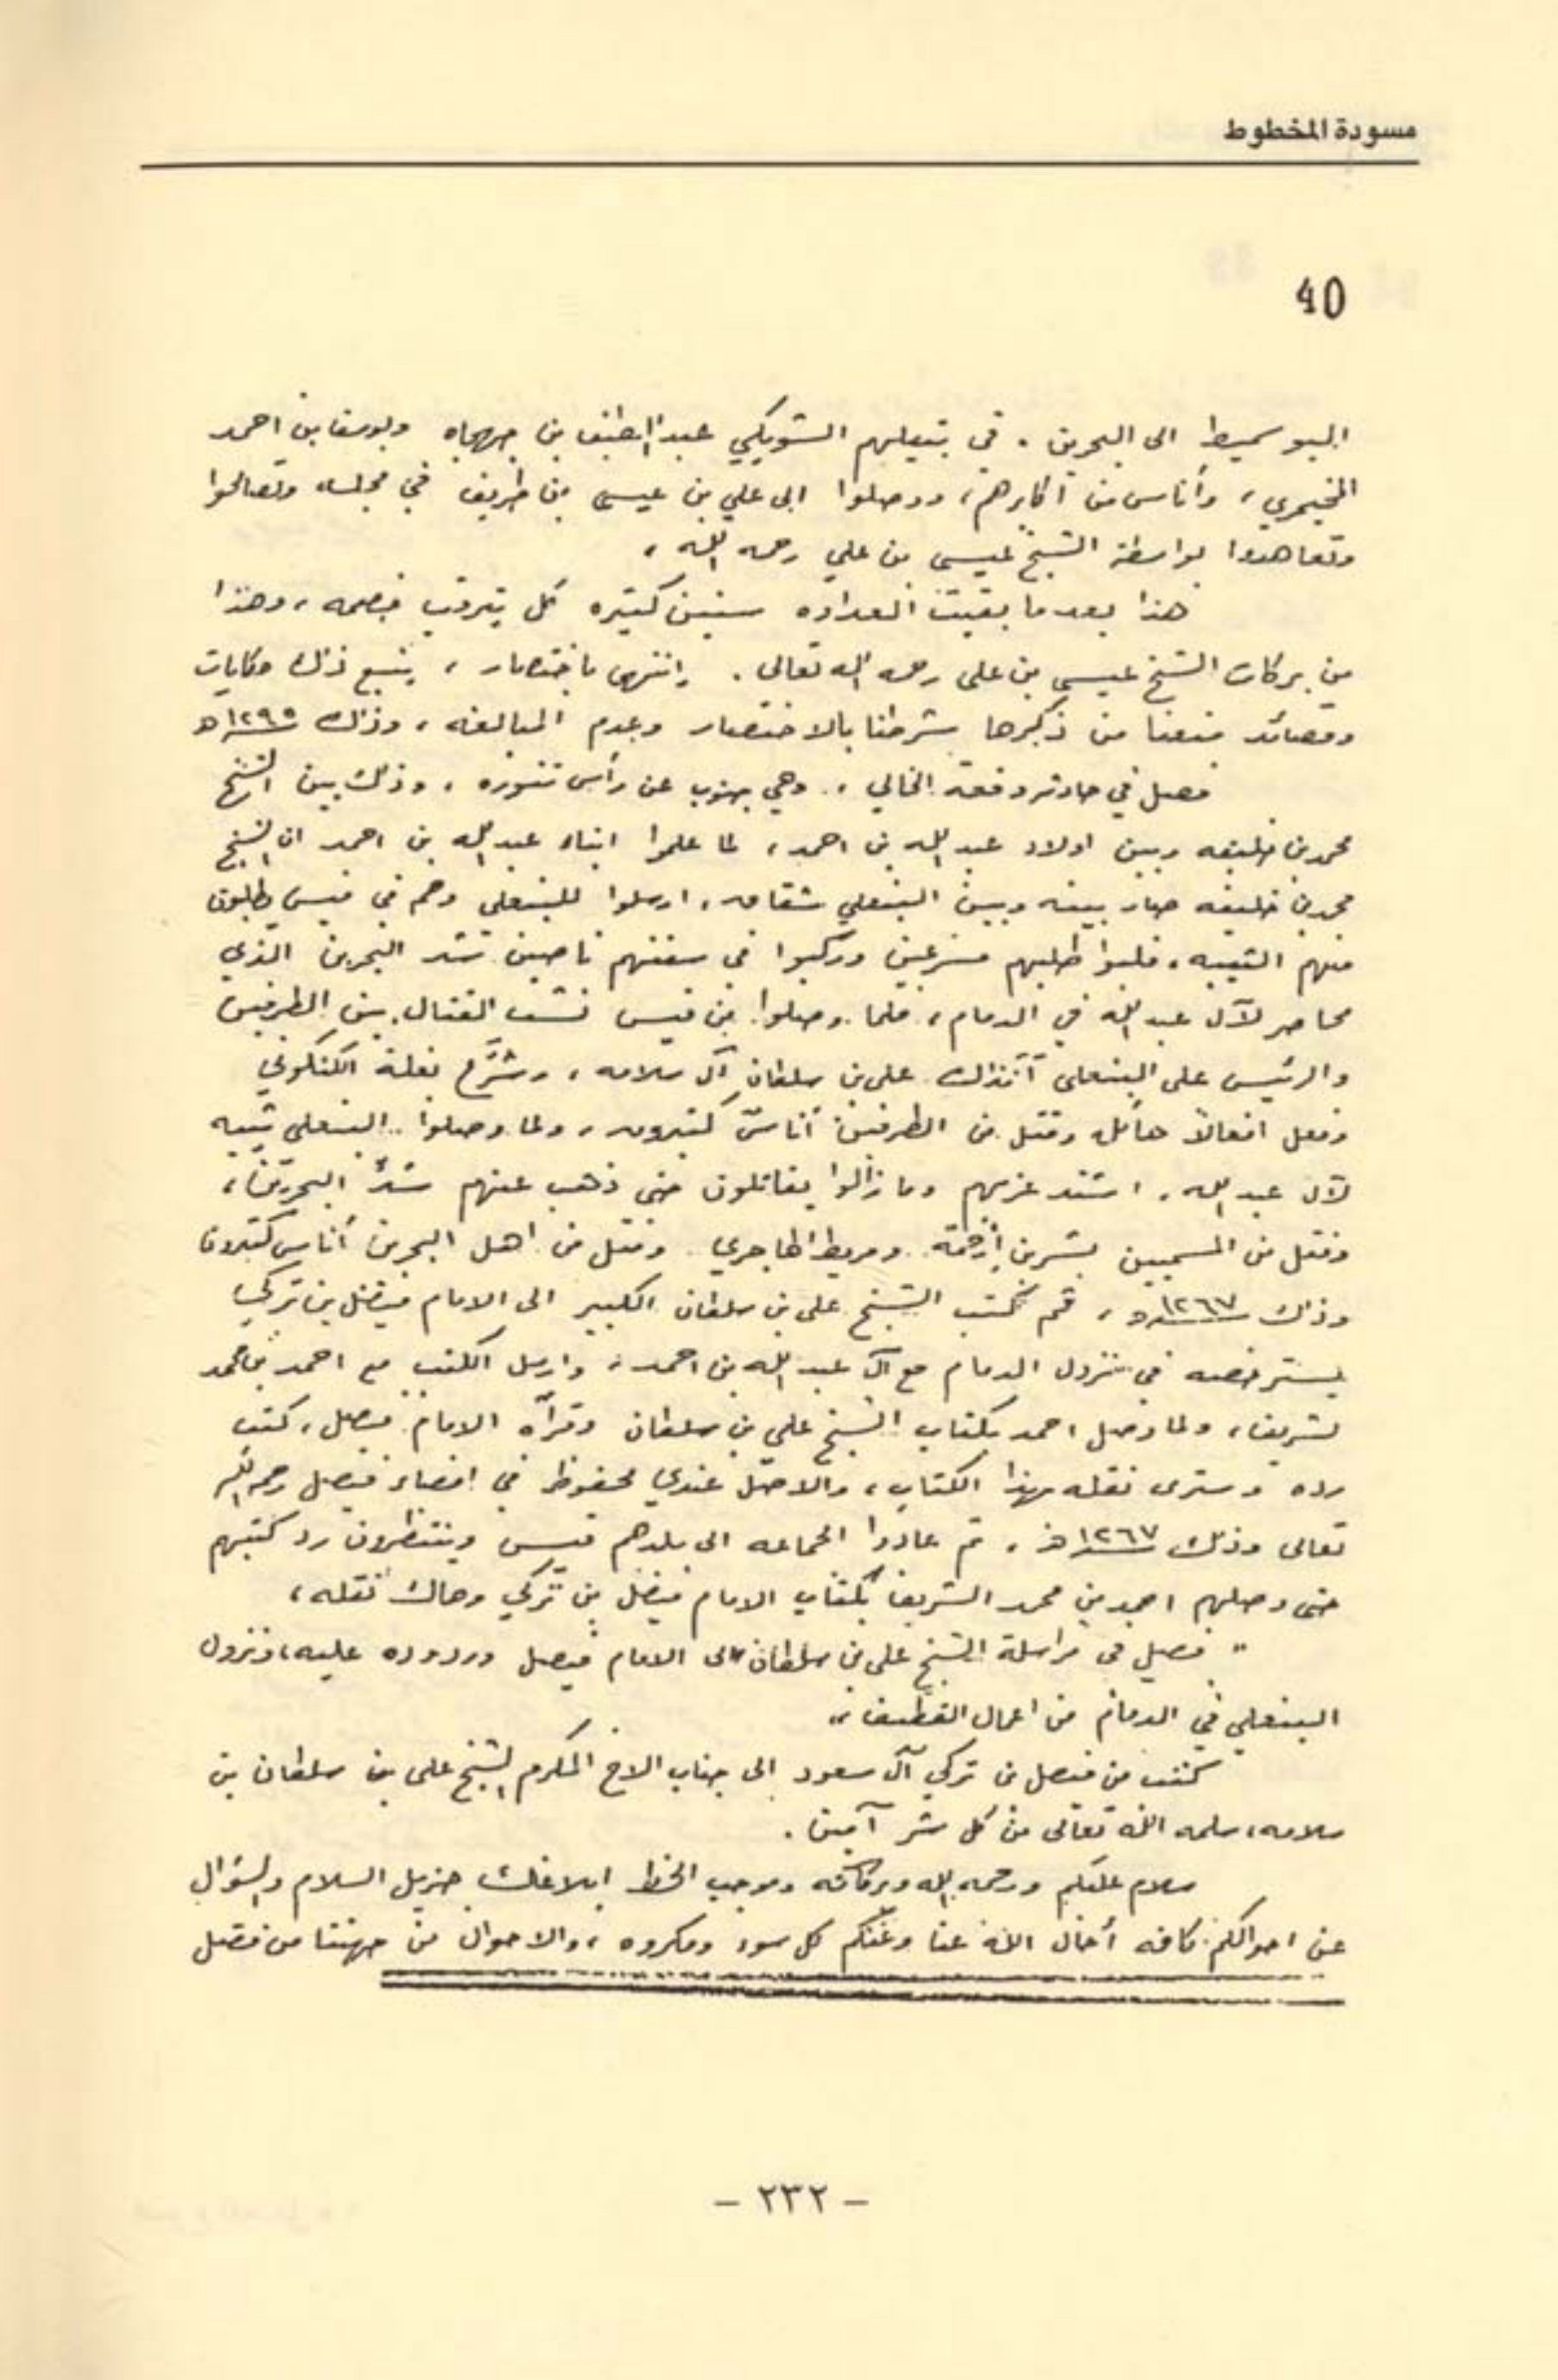 مسودة المخطوط
40
البو سميط الى البحرين . في بتيلهم الشويكي عبد اللطيف بن ويوسف بن احمد
وأناس من أكابرهم، ووصلوا الى علي بن عيسى بن طريف في مجلسه وتصالحوا
وتعاهدوا بواسطة الشيخ عيسى بن علي رحمه الله ،
هذا بعد ما بقيت العداوه سنين كثيره كل يترقب خصمه ، وهذا
من بركات الشيخ عيسى بن علي رحمه الله تعالى . وانتهى باختصار ، يتبع ذلك حكايات
وقصائد منعنا من ذكرها شرطنا بالاختصار وعدم المبالغه ، وذلك ١٢٩٥هـ
فصل في حادثة وقعة الخالي ، وهي جنوب عن رأس تنوره ، وذلك بين الشيخ
محمد بن خليفه وبين اولاد عبد الله بن احمد ، لما علموا ابناء عبد الله بن احمد ان الشيخ
محمد بن خليفه صار بينه وبين البنعلي شقاق ، ارسلوا للبنعلي وهم في قيس يطلبون
منهم ، فلبوا طلبهم مسرعين وركبوا في سفنهم ناصين البحرين الذي
محاصر لآل عبد الله في الدمام ، فلما وصلوا من قيس نشب القتال بين الطرفين
والرئيس على البنعلي آنذاك علي بن سلطان آل سلامه ، بغلة
وفعل افعالاً هائله وقتل من الطرفين أناسٌ كثيرون ، ولما وصلوا البنعلي
لآل عبد الله ، اشتد عزمهم وما زالوا يقاتلون حتى ذهب عنهم البحرين ،
وقتل من المسميين بشر بن أرحمة ومريط الهاجري وقتل من اهل البحرين أناس كثيرون
وذلك ١٢٦٧هـ ، ثم كتب الشيخ علي بن سلطان الكبير الى الامام فيصل بن تركي
يسترخصه في نزول الدمام مع آل عبد الله بن احمد ، وارسل الكتب مع احمد بن محمد
لشريف ، ولما وصل احمد بكتاب الشيخ علي بن سلطان وقرأه الامام فيصل ، كتب
رده وسترى نقله بهذا الكتاب ، والاصل عندي محفوظ في امضاء فيصل رحمه الله
تعالى وذلك ١٢٦٧هـ ، ثم عادوا الجماعه الى بلدهم قيس وينتظرون رد كتبهم
حتى وصلهم احمد بن محمد الشريف بكتاب الامام فيصل بن تركي وهاك نقله ،
" فصل في مراسلة الشيخ علي بن سلطان الى الامام فيصل وردوده عليه، ونزول
البنعلي في الدمام من اعمال القطيف "
كتب من فيصل بن تركي آل سعود الى جناب الاخ المكرم الشيخ علي بن سلطان بن
سلامه ، سلمه الله تعالى من كل شر آمين .
سلام عليكم ورحمه الله وبركاته وموجب الخط ابلاغك جزيل السلام والسؤال
عن احوالكم كافه أحال الله عنا وعنكم كل سوء ومكروه ، والاحوال من جهتنا من فضل
- ٢٣٢ -